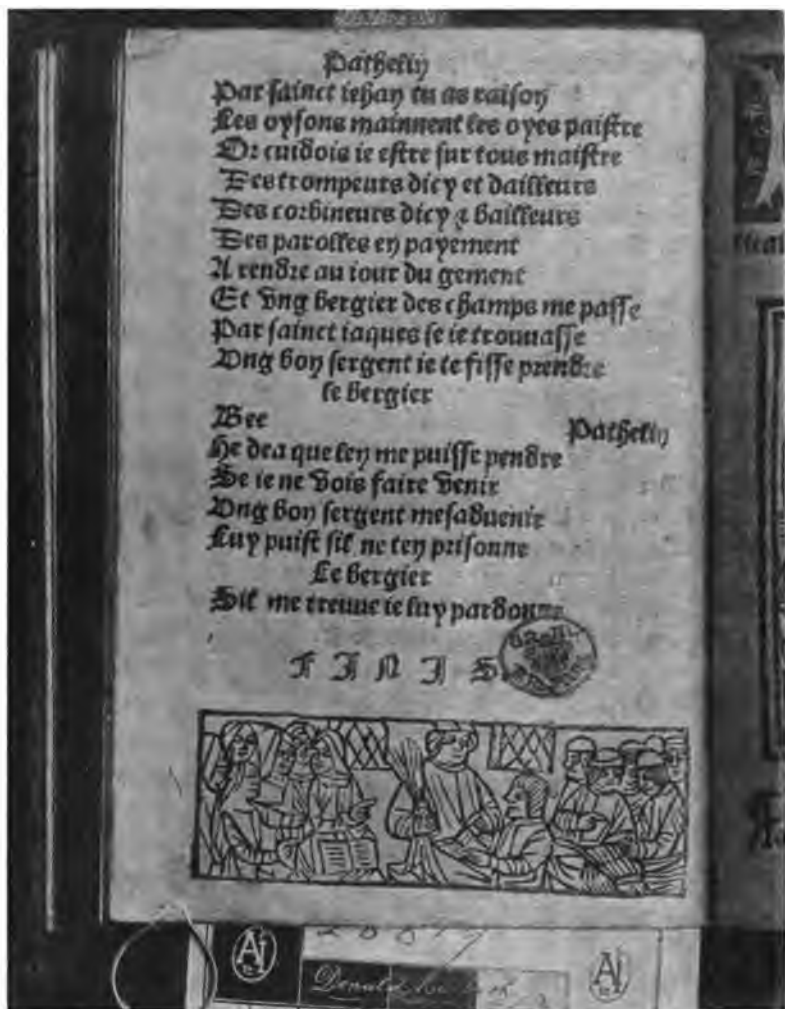 Pathelin
Par sainct iehan tu as raison
Les oysons mainnent les oyes paistre
Or cuidois ie estre sur tous maistre
Des trompeurs dicy et dailleurs
Des corbineurs dicy ⁊ bailleurs
Des parolles en payement
A rendre au iour du gement
Et vng bergier des champs me passe
Par sainct iaques se ie trouuasse
Vng bon sergent ie te fisse prendre
le bergier
Bee
Pathelin
He dea que len me puisse pendre
Se ie ne vois faire venir
Vng bon sergent mesaduenir
Luy puist sil ne ten prisonne
Le bergier
Sil me treuue ie luy pardonne
FINIS
AI
Donald
AI